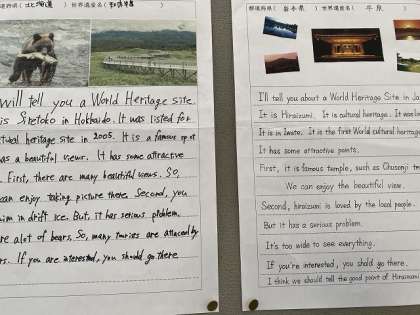 道府県(北海道) 世界遺産名(知床
will tell you a World Heritage site.
is Siretoko in Hokkaido. It was listed for
heritage site in 2005. It is a famous spot
as a beautiful views. It has some attractive
. First, there are many beautiful views. So,
can enjoy taking picture there. Second, you
im in drift ice. But, it has serious problem.
re alot of bears. So, many tourists are attaced by
rs. If you are interested, you should go there
都道府県( 県) 世界遺産名( 平泉
I'll tell you about a World Heritage Site in Ja
It is Hiraizumi. It is cultural heritage. It was
It is in Iwate. It is the first World cultural heritage
It has some attractive points.
First, it is famous temple, such as Chusonji
We can enjoy the beautiful view.
Second, hiraizumi is loved by the local people.
But it has a serious problem.
It's too wide to see everything.
If you're interested, you should go there.
I think we should tell the good point of Hiraizumi